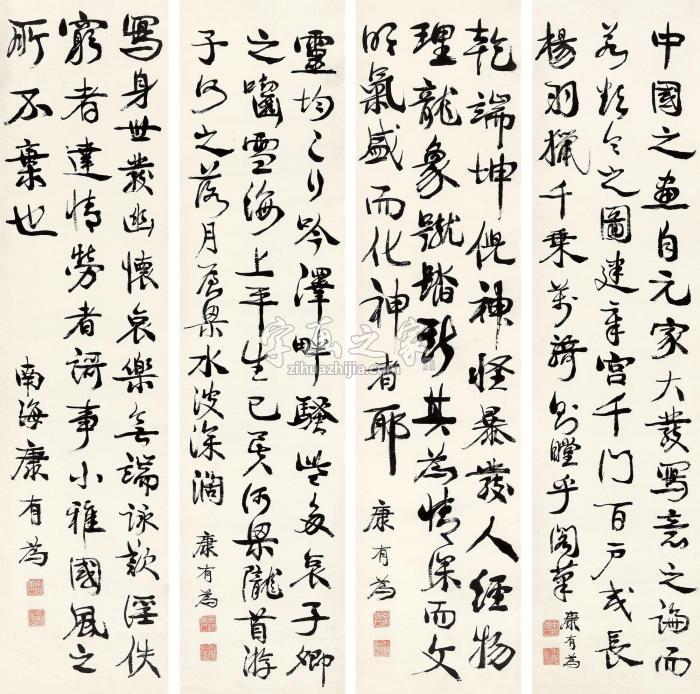 中國之畫自元家大發寫意之論而
若令之圖建章宮千門百戶或長
楊羽獵千乘萬騎則瞠乎閣筆
康有為
乾端坤倪神怪暴發人經物
理龍象蹴踏其為情深而文
明氣盛而化神者耶
康有為
靈均之行吟澤畔騷些多哀子卿
之嚙雪海上平生已矣河梁隴首游
子何之落月屋梁水波深濶
康有為
寫身世發幽懷哀樂無端詠歎淫佚
窮者達情勞者謌事小雅國風之
所不棄也
南海康有為
字画之家
zihuazhijia.com